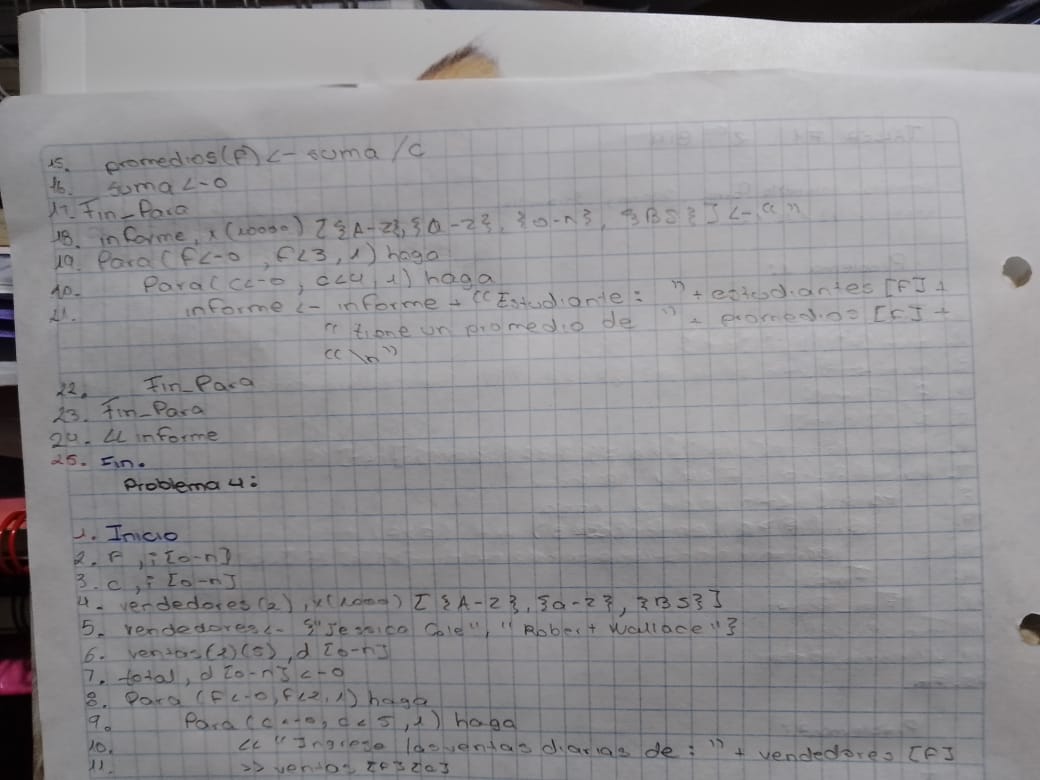 15. promedios(F) <- suma /C
16. suma <- 0
17. Fin_Para
18. informe, x(10000) [{A-Z},{a-z}, {0-n}, {BS}] <- " "
19. Para (F<-0, F<3, 1) haga
20. Para (C<-0, c<4, 1) haga
21. informe <- informe + "Estudiante: " + estudiantes [F] +
" tiene un promedio de " + promedios [F] +
"\n"
22. Fin_Para
23. Fin_Para
24. << informe
25. Fin.
Problema 4:
1. Inicio
2. F, i [0-n]
3. C, i [0-n]
4. vendedores(2), x(1000) [{A-Z}, {a-z}, {BS}]
5. vendedores <- {"Jessica Cole", "Robert Wallace"}
6. ventas(2)(5), d [0-n]
7. total, d [0-n] <- 0
8. Para (F<-0, F<2, 1) haga
9. Para (C<-0, c<5, 1) haga
10. << "Ingrese las ventas diarias de: " + vendedores [F]
11. >> ventas [F][C]